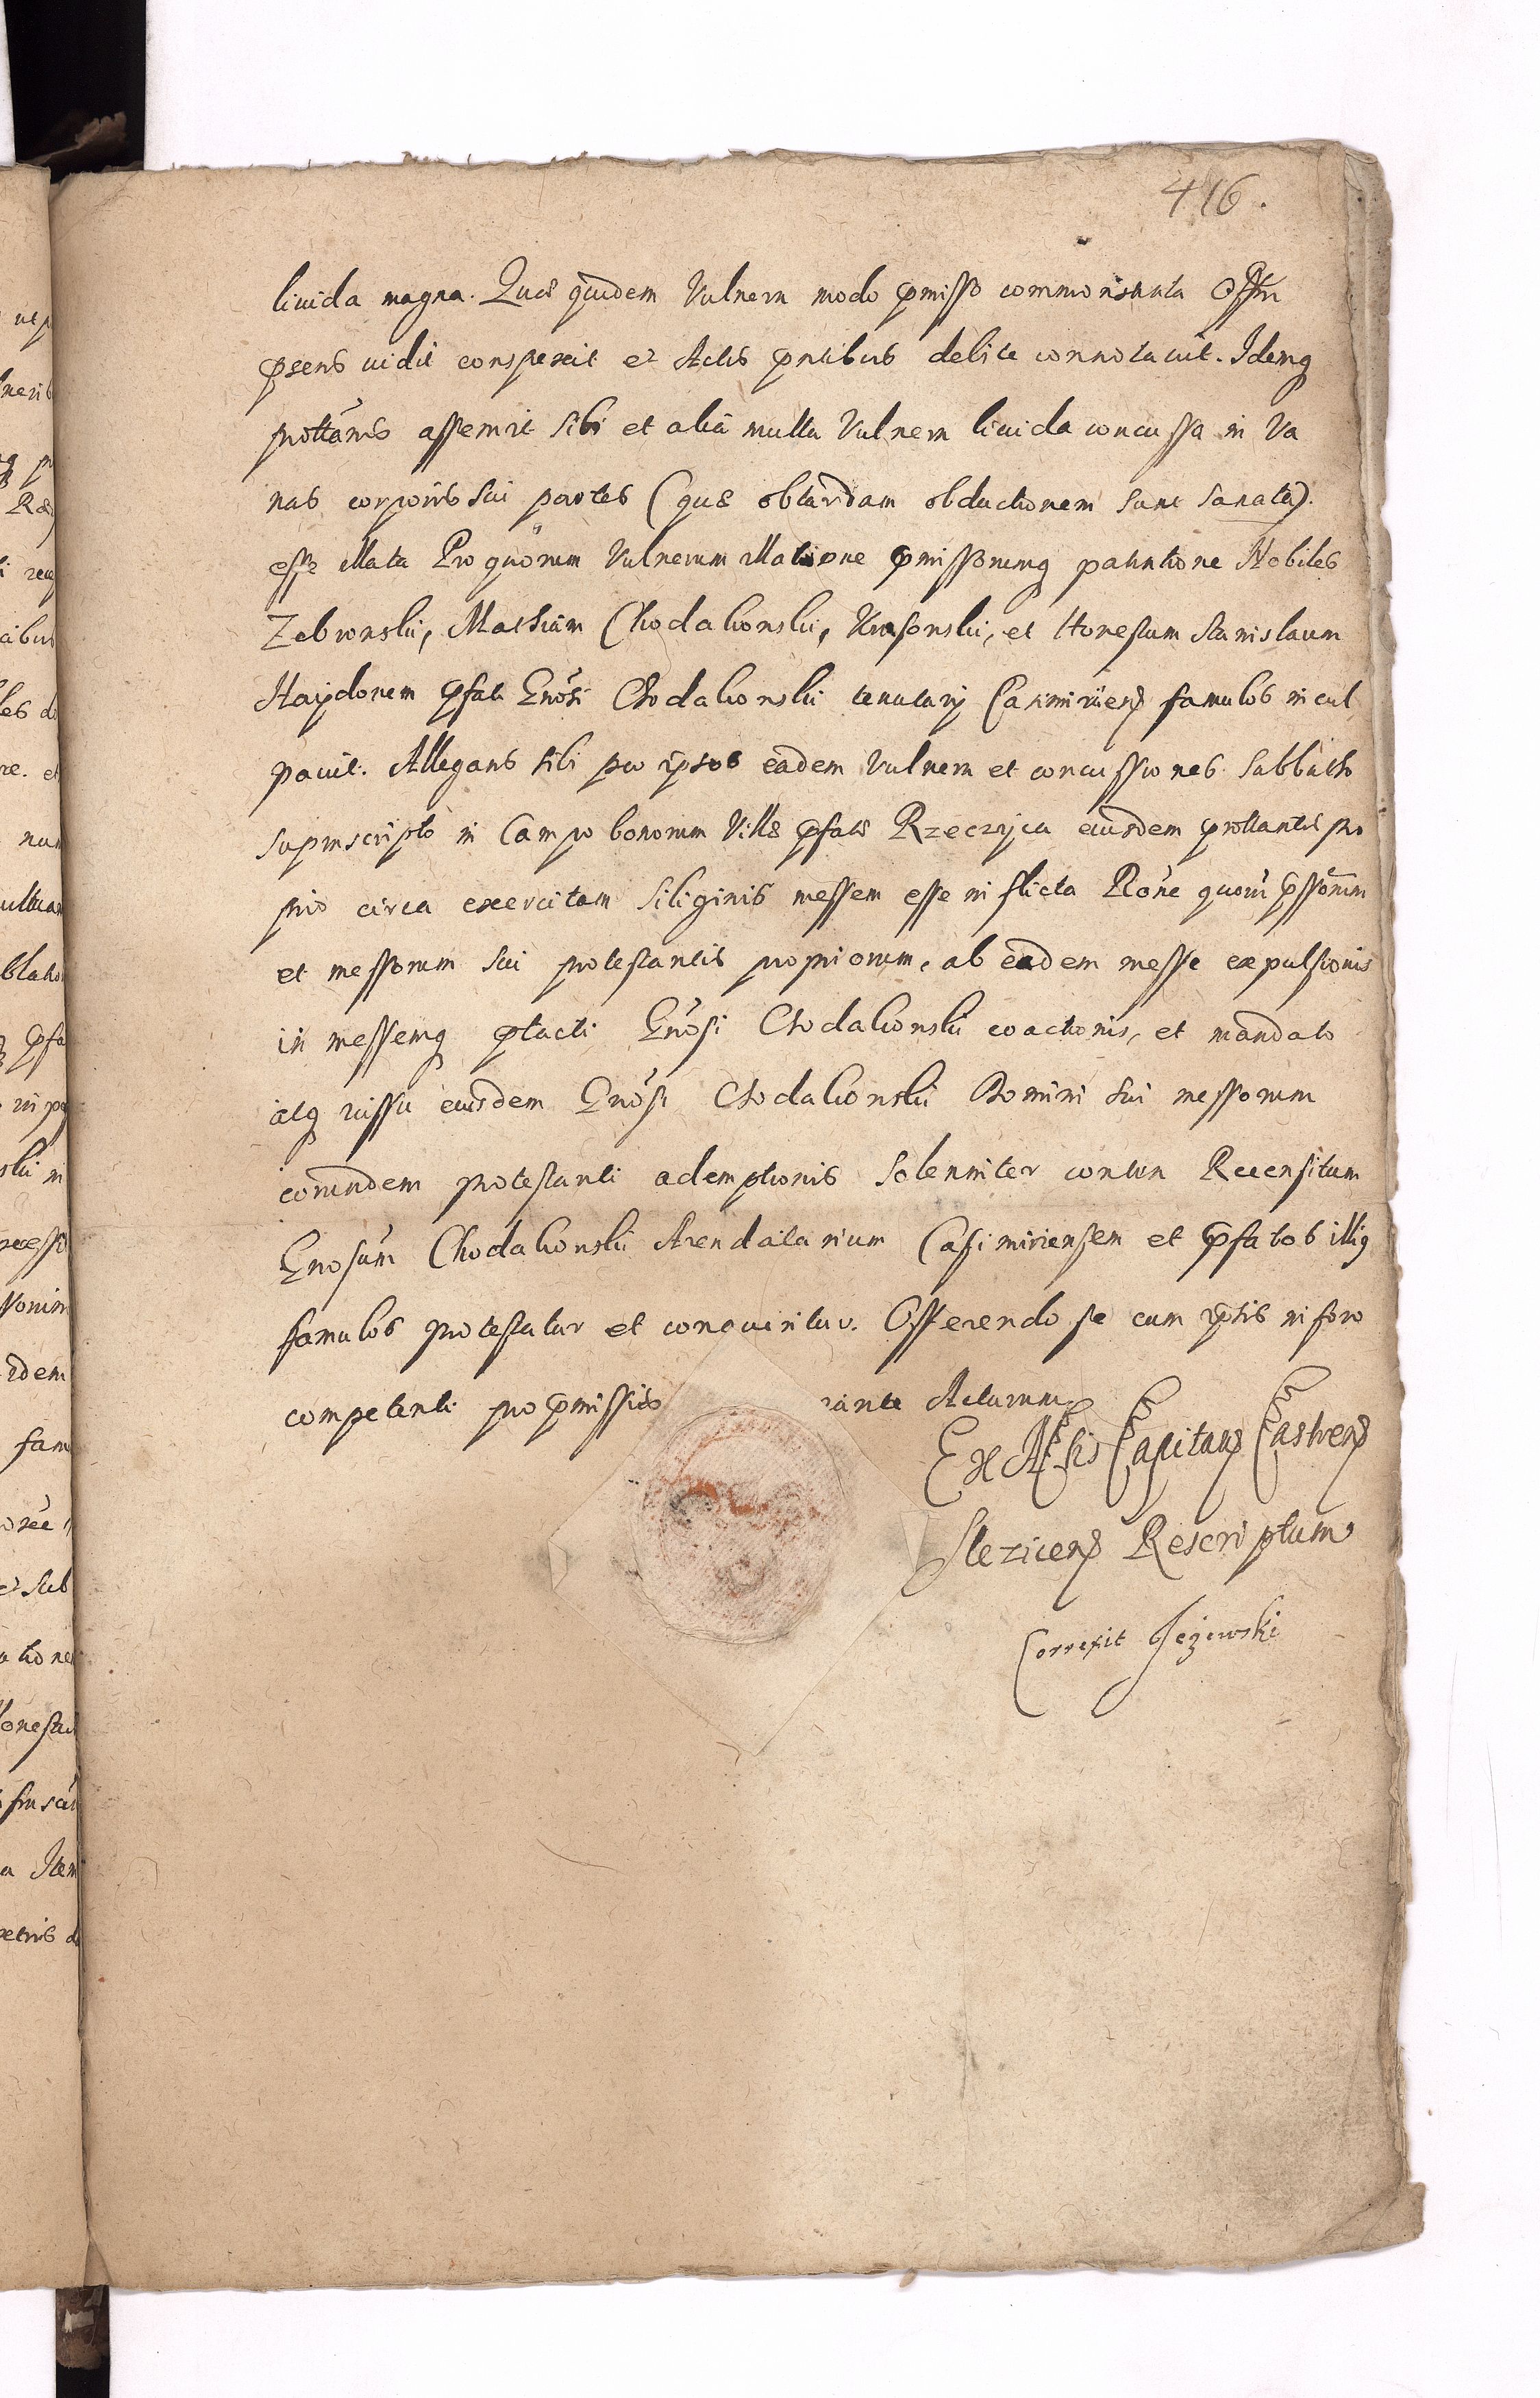 416.
livida magna. Quæ quidem Vulnera modo pmisso commonstrata Offm
psens vidit conspexit et Actis pntibus debite connotavit. Idemq
prottans asseruit sibi et alia multa Vulnera livida concussa in Va
rias corporis sui partes (quæ ob tardam obductionem sunt sanata).
esse illata Pro quorum Vulnerum illatione pmissorumq patratione Nobiles
Zebronskii, Mathiam Chodakonskii, Krasonskii, et Honestum Stanislaum
Haydonem pfati Gnosi Chodakonskii tenutarij Casimirien famulos incul
pavit. Allegans sibi per ipsos eadem Vulnera et concussiones Sabbatho
suprascripto in Campo bonorum Villæ pfatæ Rzeczyca eiusdem prottantis pro
prio circa exercitam siliginis messem esse inflicta Rone quorum pssorum
et messorum sui protestantis propriorum, ab eadem messe expulsionis
in messemq ptacti Gnosi Chodakonskii coactionis, et mandato
atq iussu eiusdem Gnosi Chodakonskii Domini sui messorum
eorundem protestanti ademptionis Solenniter contra Recensitum
Gnosum Chodakonskii Arendatarium Casimiriensem et pfatos illiq
famulos protestatur et conqueritur. Offerendo se cum ipsis in foro
competenti pro pmissis rante Acturum
Ex Actis Capitan Castren
Slezicen Rescriptum
Correxit Jezewski